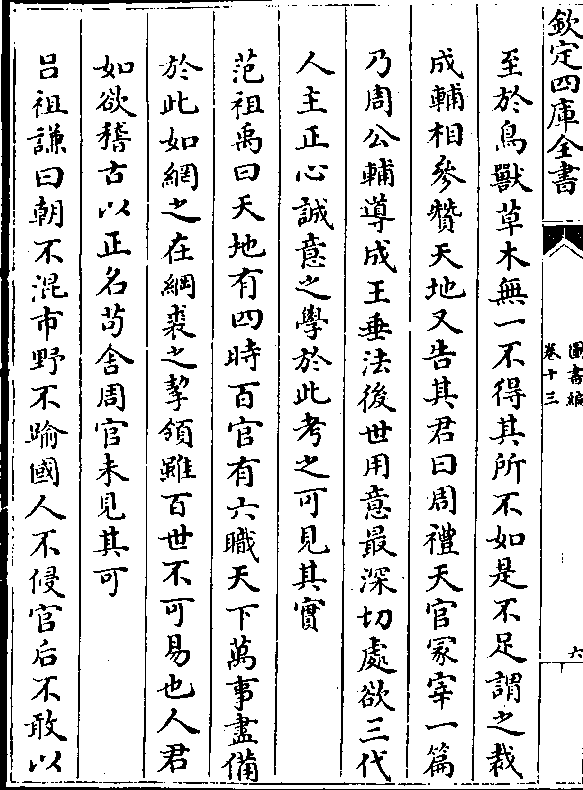 欽定四庫全書
圖書編
卷十三
六
至於鳥獸草木無一不得其所不如是不足謂之裁
成輔相參贊天地又告其君曰周禮天官冢宰一篇
乃周公輔導成王垂法後世用意最深切處欲三代
人主正心誠意之學於此考之可見其實
范祖禹曰天地有四時百官有六職天下萬事盡備
於此如網之在綱裘之挈領雖百世不可易也人君
如欲稽古以正名茍舍周官未見其可
呂祖謙曰朝不混市野不踰國人不侵官后不敢以